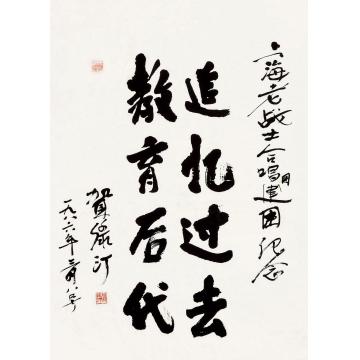 上海老战士合唱团建团纪念
追忆过去
教育后代
賀绿汀
一九八六年